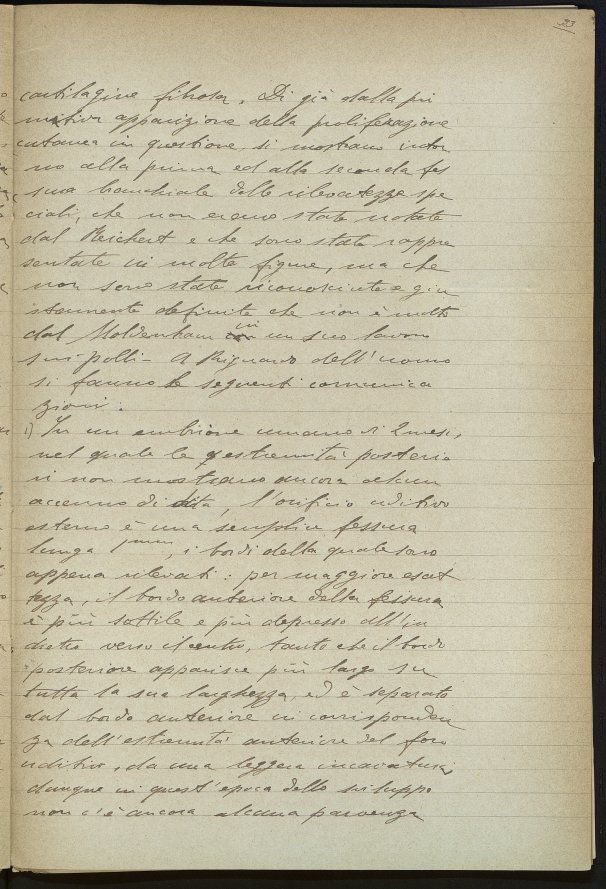 33
cartilagine fibrosa. Di già dalla pri
mitiva apparizione della proliferazione
cutanea in questione, si mostrano intor
no alla prima ed alla seconda fes
sura branchiale delle rilevatezze spe
ciali, che non erano state notate
dal Reichert e che sono state rappre
sentate in molte figure, ma che
non sono state riconosciute e giu
stamente definite che non è molto
dal Moldenham in un suo lavoro
sui polli - A Riguardo dell'uomo
si fanno le seguenti comunica
zioni:
1) In un embrione umano di 2 mesi,
nel quale le estremità posterio
ri non mostrano ancora alcun
accenno di dita, l'orificio uditivo
esterno è una semplice fessura
lunga 1mm, i bordi della quale sono
appena rilevati: per maggiore esat
tezza, il bordo anteriore della fessura
è più sottile e più depresso all'in
dietro verso il centro, tanto che il bordo
posteriore apparisce più largo su
tutta la sua larghezza, ed è separato
dal bordo anteriore in corrisponden
za dell'estremità anteriore del foro
uditivo, da una leggera incavatura;
dunque in quest'epoca dello sviluppo
non c'è ancora alcuna parvenza